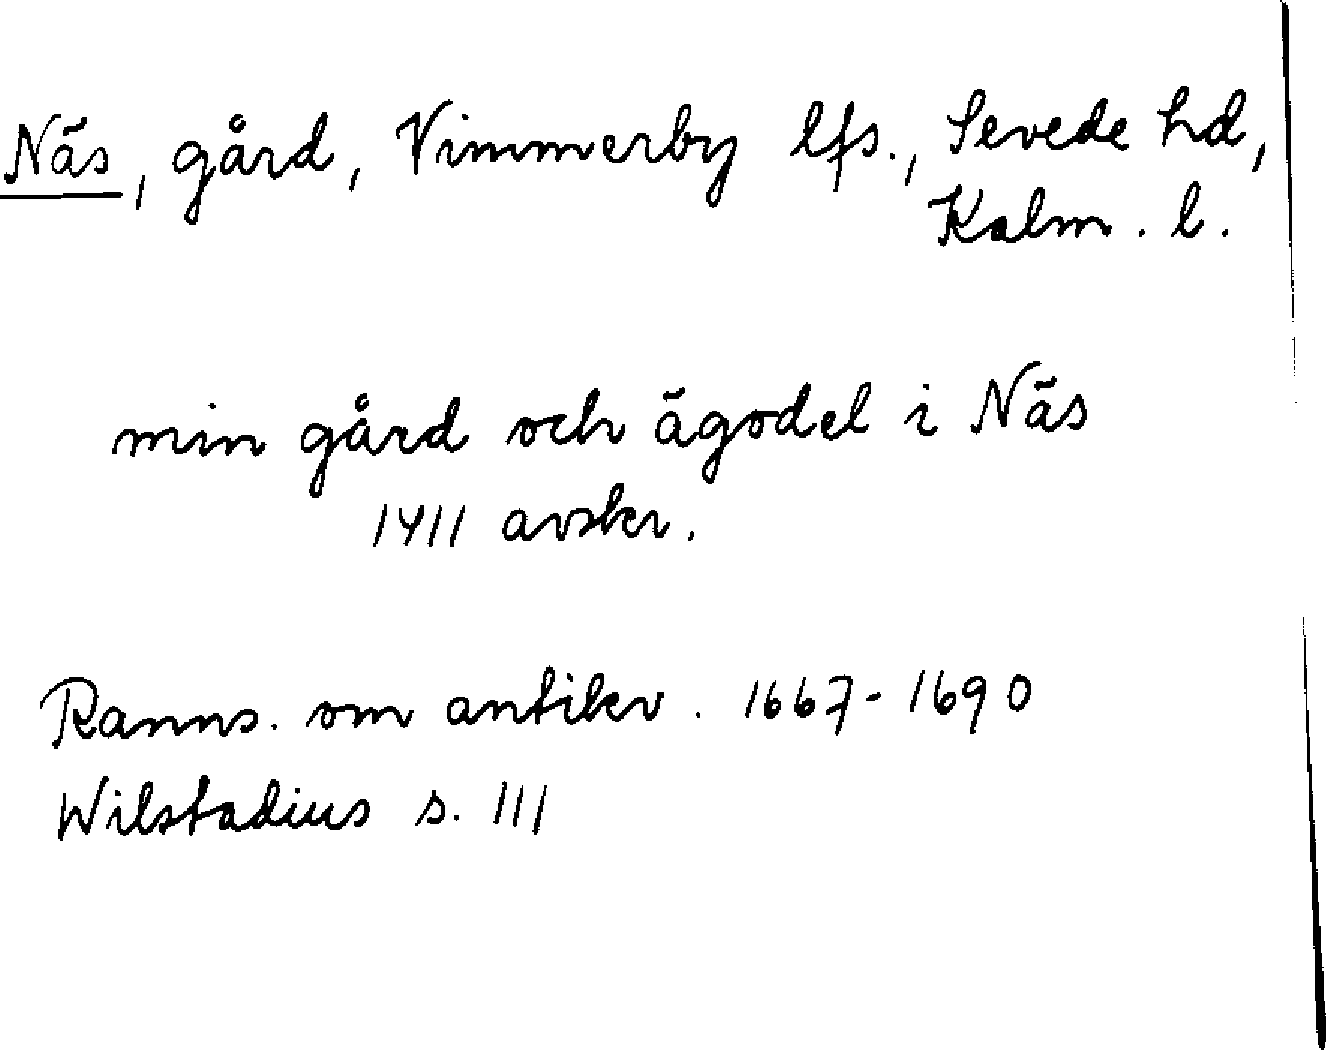 Näs, gård, Vimmerby lfs., Sevede hd,
Kalm. l.
min gård och ägodel i Näs
1411 avskr.
Ranns. om antikv. 1667-1690
Wilstadius s. 111